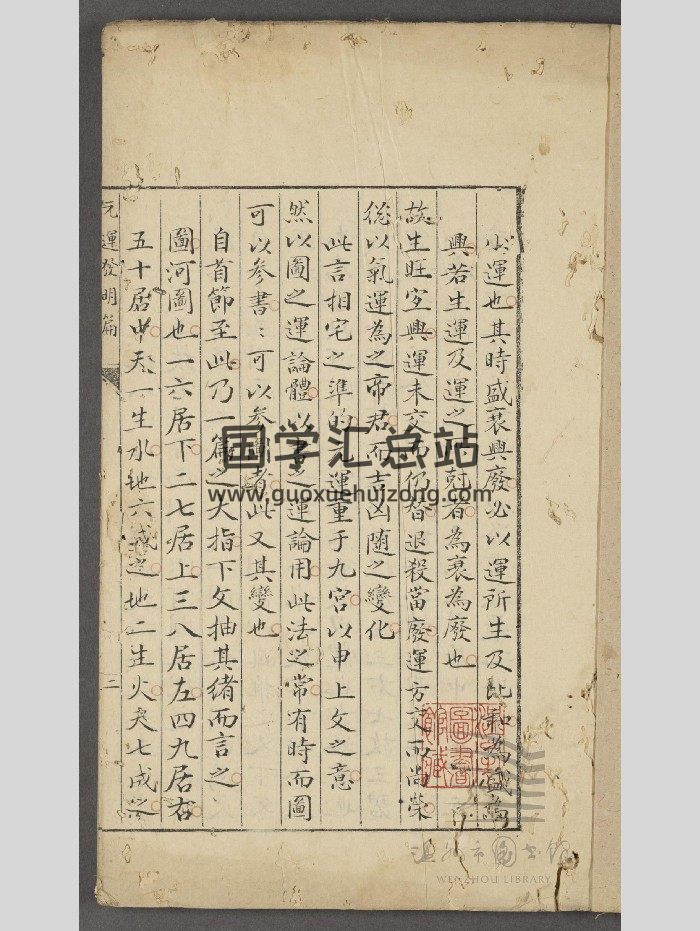 此運也其時盛衰興廢必以運所生及比和為盛為
興若生運及運之所尅者為衰為廢也
故生旺宜興運未交而仍替退殺當廢運方交而尚榮
從以氣運為之帝君而吉凶隨之變化
此言相宅之準的元運重于九宮以申上文之意
然以圖之運論體以書之運論用此法之常有時而圖
可以參書：可以參圖者此又其變也
自首節至此乃一篇之大指下文抽其緒而言之
圖河圖也一六居下二七居上三八居左四九居右
五十居中天一生水地六成之地二生火天七成之
元運發明篇
二
国学汇总站
www.guoxuehuizong.com
圖書
館藏
溫州市圖書館
WENZHOU LIBRARY